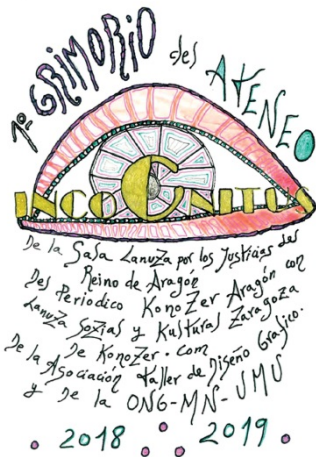 1º GRIMORIO del ATENEO
INCOGNITUS
De la Sala Lanuza por los Justicias del
Reino de Aragón
Del Periodico KonoZer Aragón con
LanuZa SoZias y Kulturas Zaragoza
De KonoZer.com
De la Asociación Taller de Diseño Grafico.
y De la ONG-MN-UMU
2018 2019